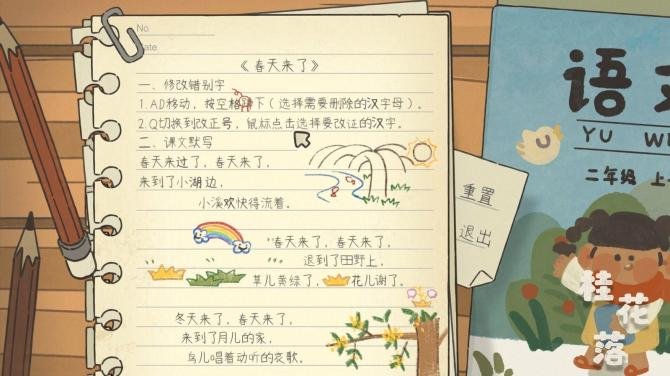 No.
Date.
《春天来了》
一、修改错别字
1.AD移动，按空格蹲下（选择需要删除的汉字母）。
2.Q切换到改正号，鼠标点击选择要改证的汉字。
二、课文默写
春天来过了，春天来了，
来到了小湖边，
小溪欢快得流着。
春天来了，春天来了，
退到了田野上，
草儿黄绿了，花儿谢了。
冬天来了，春天来了，
来到了月儿的家，
鸟儿唱着动听的衣歌。
重置
退出
语文
YU WE
二年级 上
桂花落